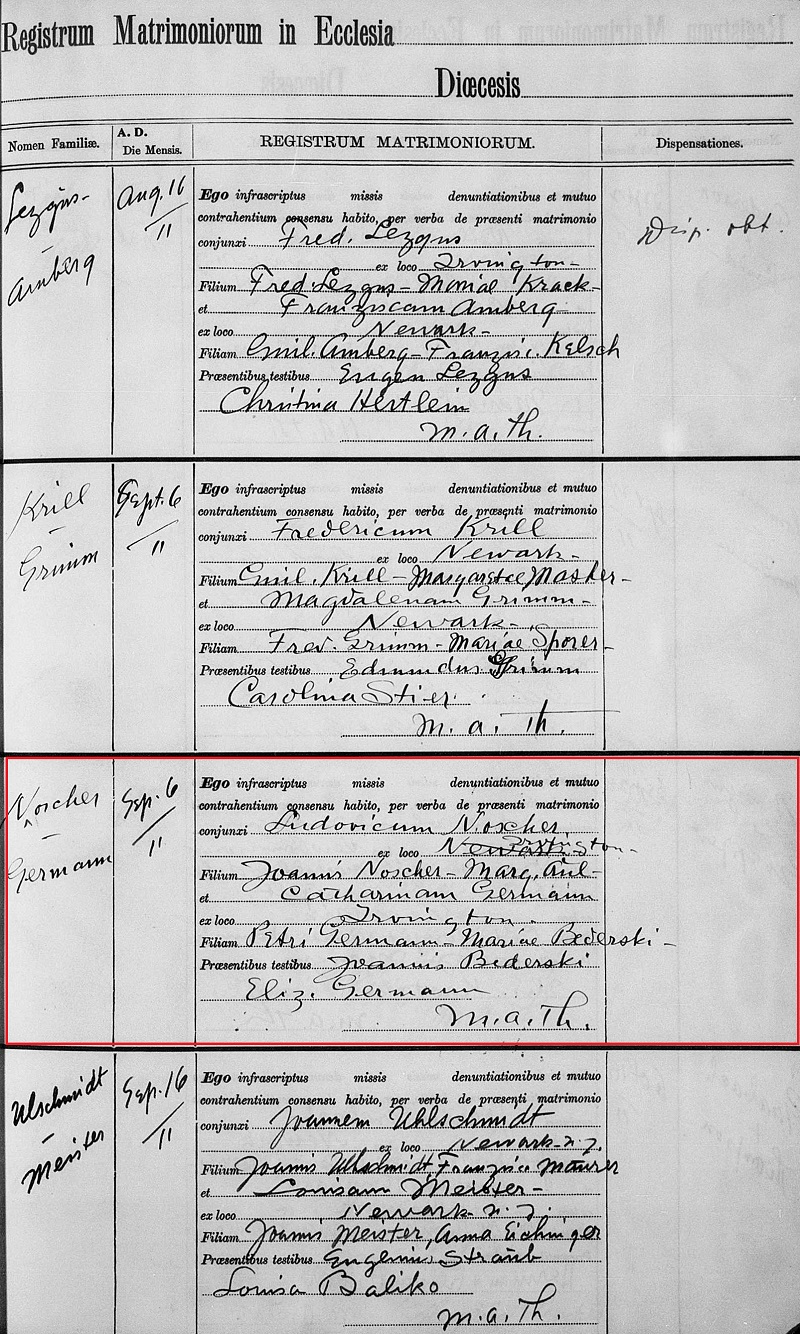 Registrum Matrimoniorum in Ecclesia
Diœcesis
Nomen Familiæ.
A. D.
Die Mensis.
REGISTRUM MATRIMONIORUM.
Dispensationes.
Lezgus-
Amberg
Aug. 16
11
Ego infrascriptus missis denuntiationibus et mutuo
contrahentium consensu habito, per verba de præsenti matrimonio
conjunxi Fred. Lezgus
ex loco Irvington-
Filium Fred. Lezgus - Mariae Krack-
et Franziscam Amberg
ex loco Newark-
Filiam Emil. Amberg - Franzis. Kelsch
Præsentibus testibus Eugen Lezgus
Christina Hertlein
M. a. Th.
Disp. obt.
Krill
-
Grimm
Sept. 6
11
Ego infrascriptus missis denuntiationibus et mutuo
contrahentium consensu habito, per verba de præsenti matrimonio
conjunxi Fredericum Krill
ex loco Newark-
Filium Emil. Krill - Margaretae Master-
et Magdalenam Grimm-
ex loco Newark-
Filiam Fred. Grimm - Mariae Sporer-
Præsentibus testibus Edmundus Grimm
Carolina Stier.
M. a. Th.
Noscher
-
Germann
Sep. 6
11
Ego infrascriptus missis denuntiationibus et mutuo
contrahentium consensu habito, per verba de præsenti matrimonio
conjunxi Ludovicum Noscher
ex loco Irvington-
Filium Joannis Noscher - Marg. Aul-
et Catharinam Germann
ex loco Irvington.
Filiam Petri Germann - Mariae Bederski-
Præsentibus testibus Joannis Bederski
Eliz. Germann
M. a. Th.
Ulschmidt
-
Meister
Sep. 16
11
Ego infrascriptus missis denuntiationibus et mutuo
contrahentium consensu habito, per verba de præsenti matrimonio
conjunxi Joannem Uhlschmidt
ex loco Newark-N. J.
Filium Joannis Uhlschmidt, Franzisca Maurer
et Louisam Meister-
ex loco Newark N. J.
Filiam Joannis Meister, Anna Eichinger
Præsentibus testibus Eugenius Straub
Louisa Baliko
M. a. Th.